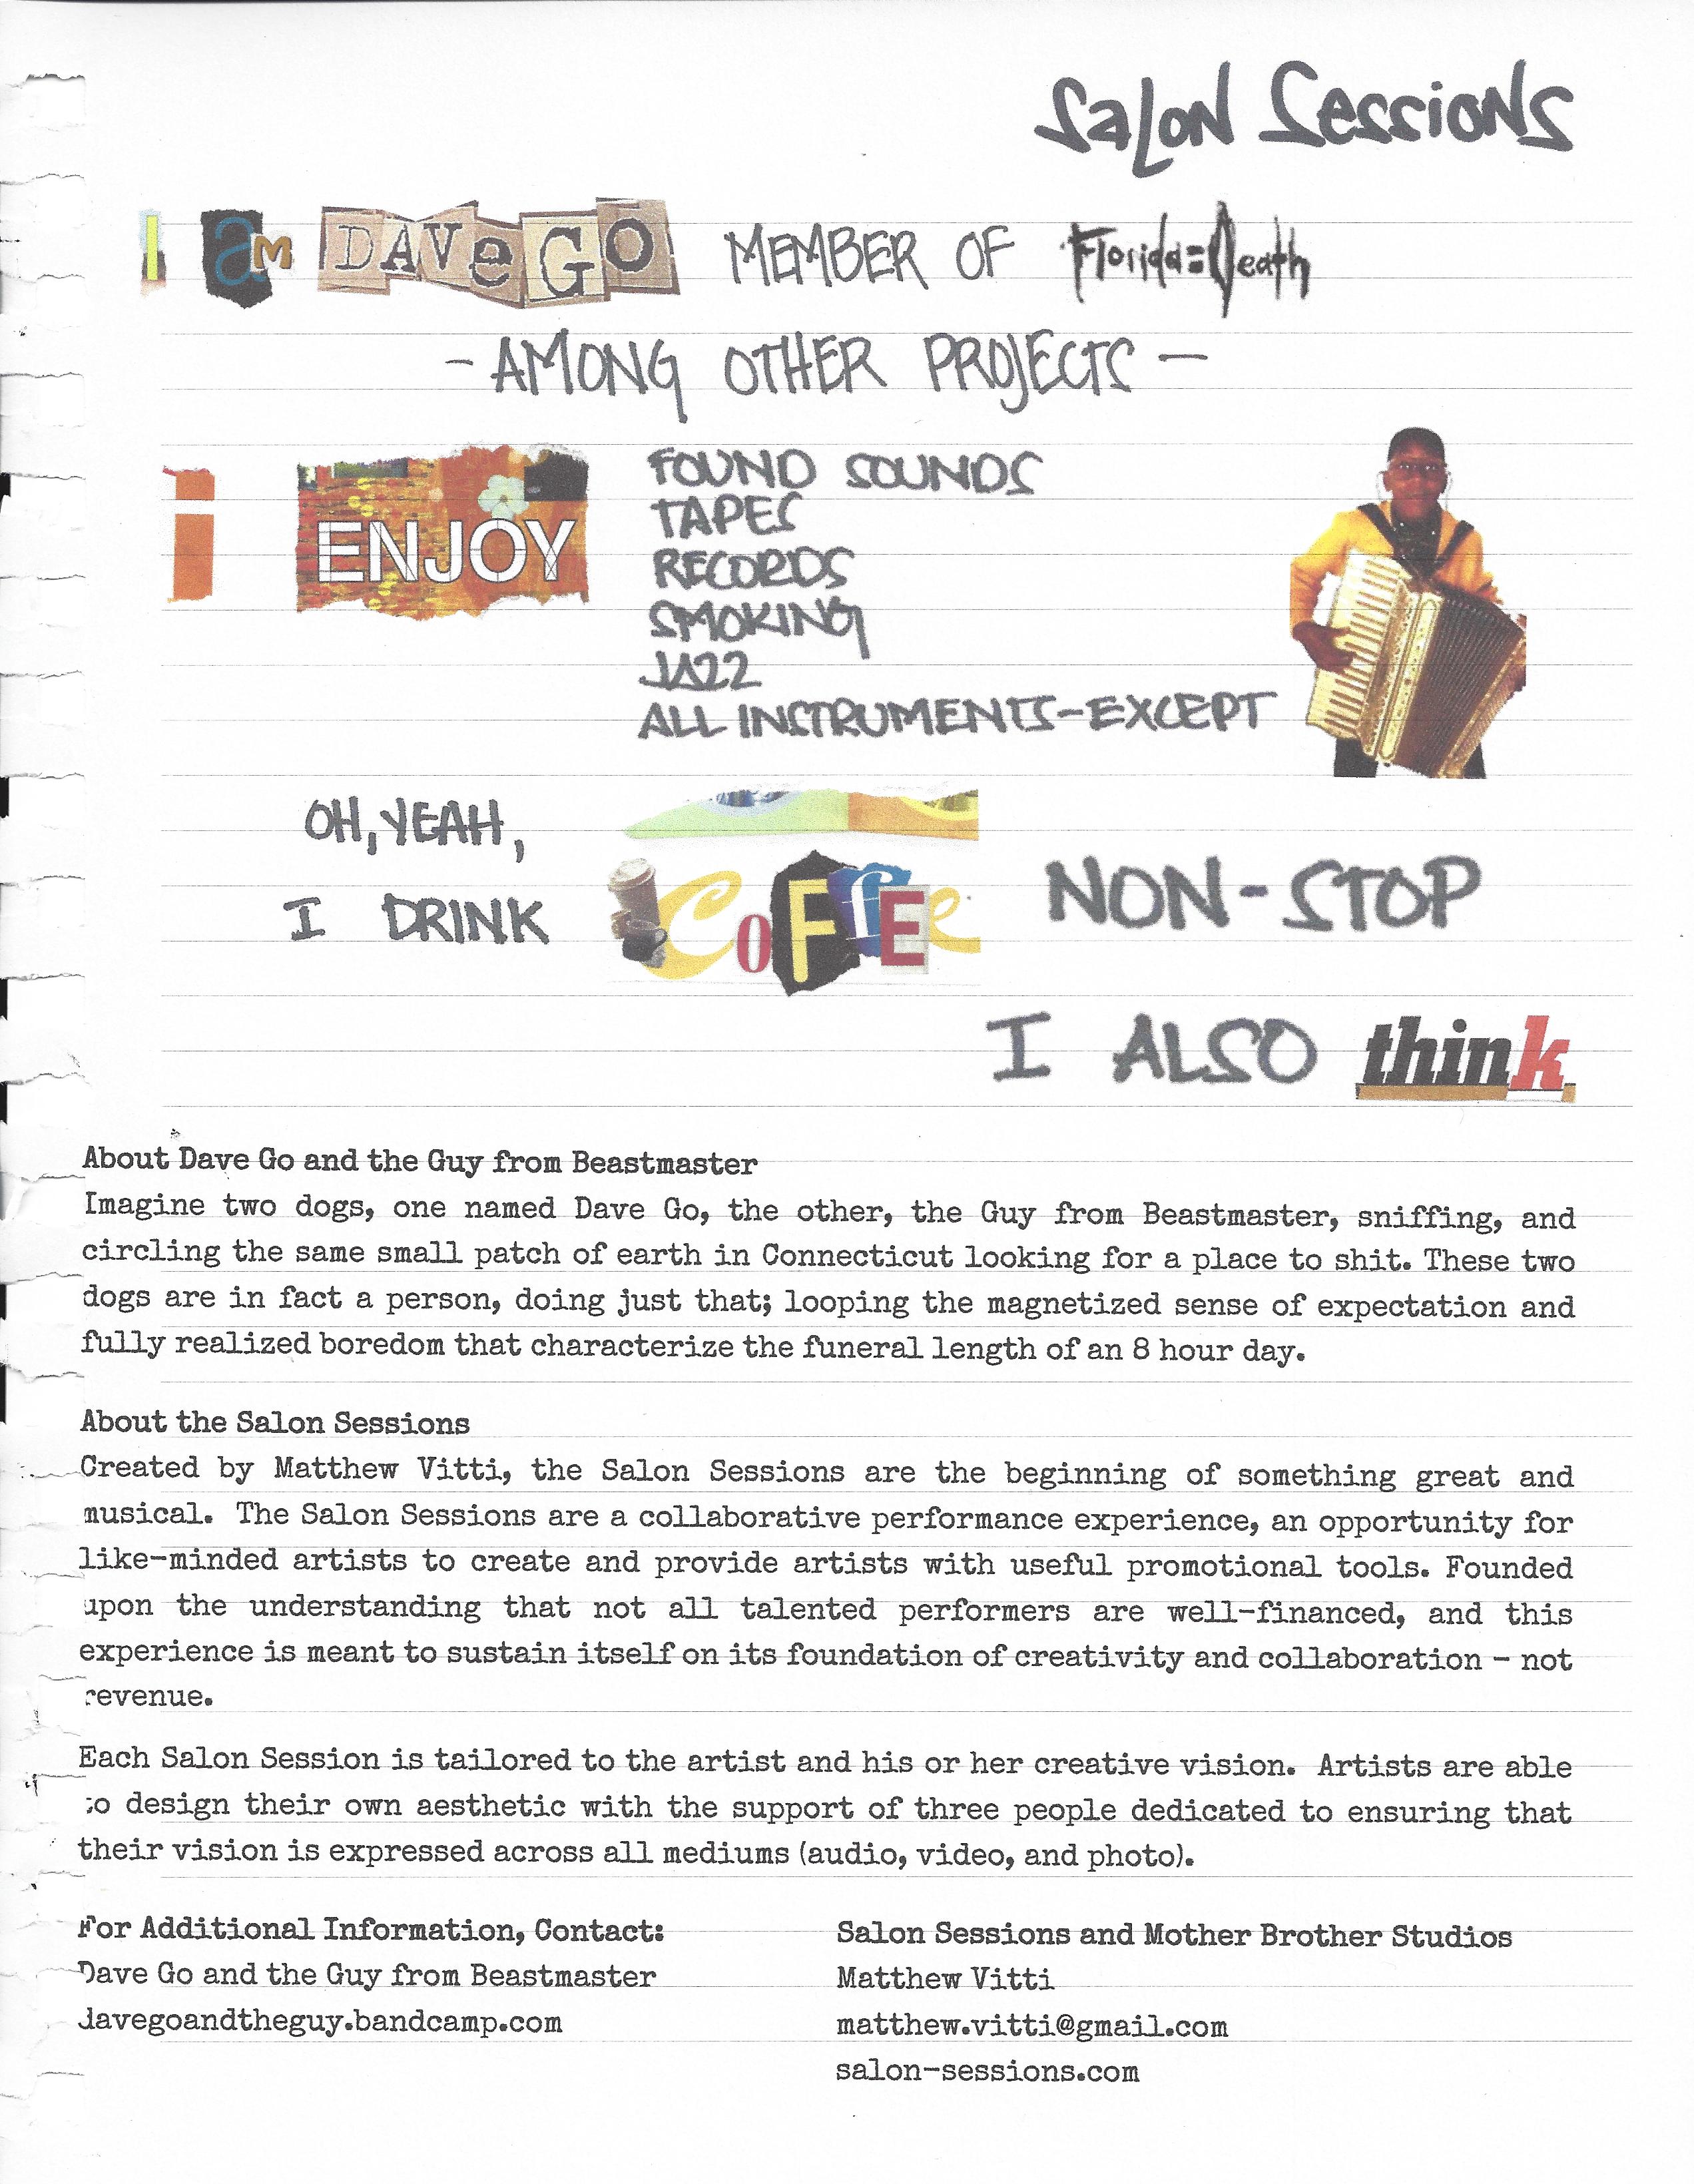 Salon Sessions
I am DAVe GO MEMBER OF Florida=Death
- AMONG OTHER PROJECTS -
i ENJOY
FOUND SOUNDS
TAPES
RECORDS
SMOKING
JAZZ
ALL INSTRUMENTS-EXCEPT
OH, YEAH,
I DRINK CoFfEe NON-STOP
I ALSO think
About Dave Go and the Guy from Beastmaster
Imagine two dogs, one named Dave Go, the other, the Guy from Beastmaster, sniffing, and
circling the same small patch of earth in Connecticut looking for a place to shit. These two
dogs are in fact a person, doing just that; looping the magnetized sense of expectation and
fully realized boredom that characterize the funeral length of an 8 hour day.
About the Salon Sessions
Created by Matthew Vitti, the Salon Sessions are the beginning of something great and
musical. The Salon Sessions are a collaborative performance experience, an opportunity for
like-minded artists to create and provide artists with useful promotional tools. Founded
upon the understanding that not all talented performers are well-financed, and this
experience is meant to sustain itself on its foundation of creativity and collaboration – not
revenue.
Each Salon Session is tailored to the artist and his or her creative vision. Artists are able
to design their own aesthetic with the support of three people dedicated to ensuring that
their vision is expressed across all mediums (audio, video, and photo).
For Additional Information, Contact:
Dave Go and the Guy from Beastmaster
davegoandtheguy.bandcamp.com
Salon Sessions and Mother Brother Studios
Matthew Vitti
matthew.vitti@gmail.com
salon-sessions.com